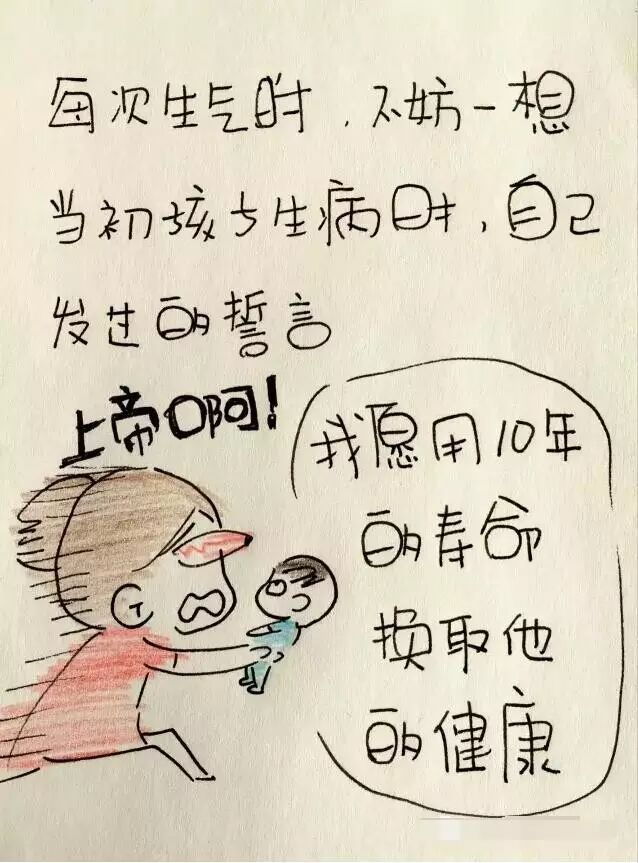 每次生气时，不妨一想
当初孩子生病时，自己
发过的誓言
上帝啊！
我愿用10年
的寿命
换取他
的健康